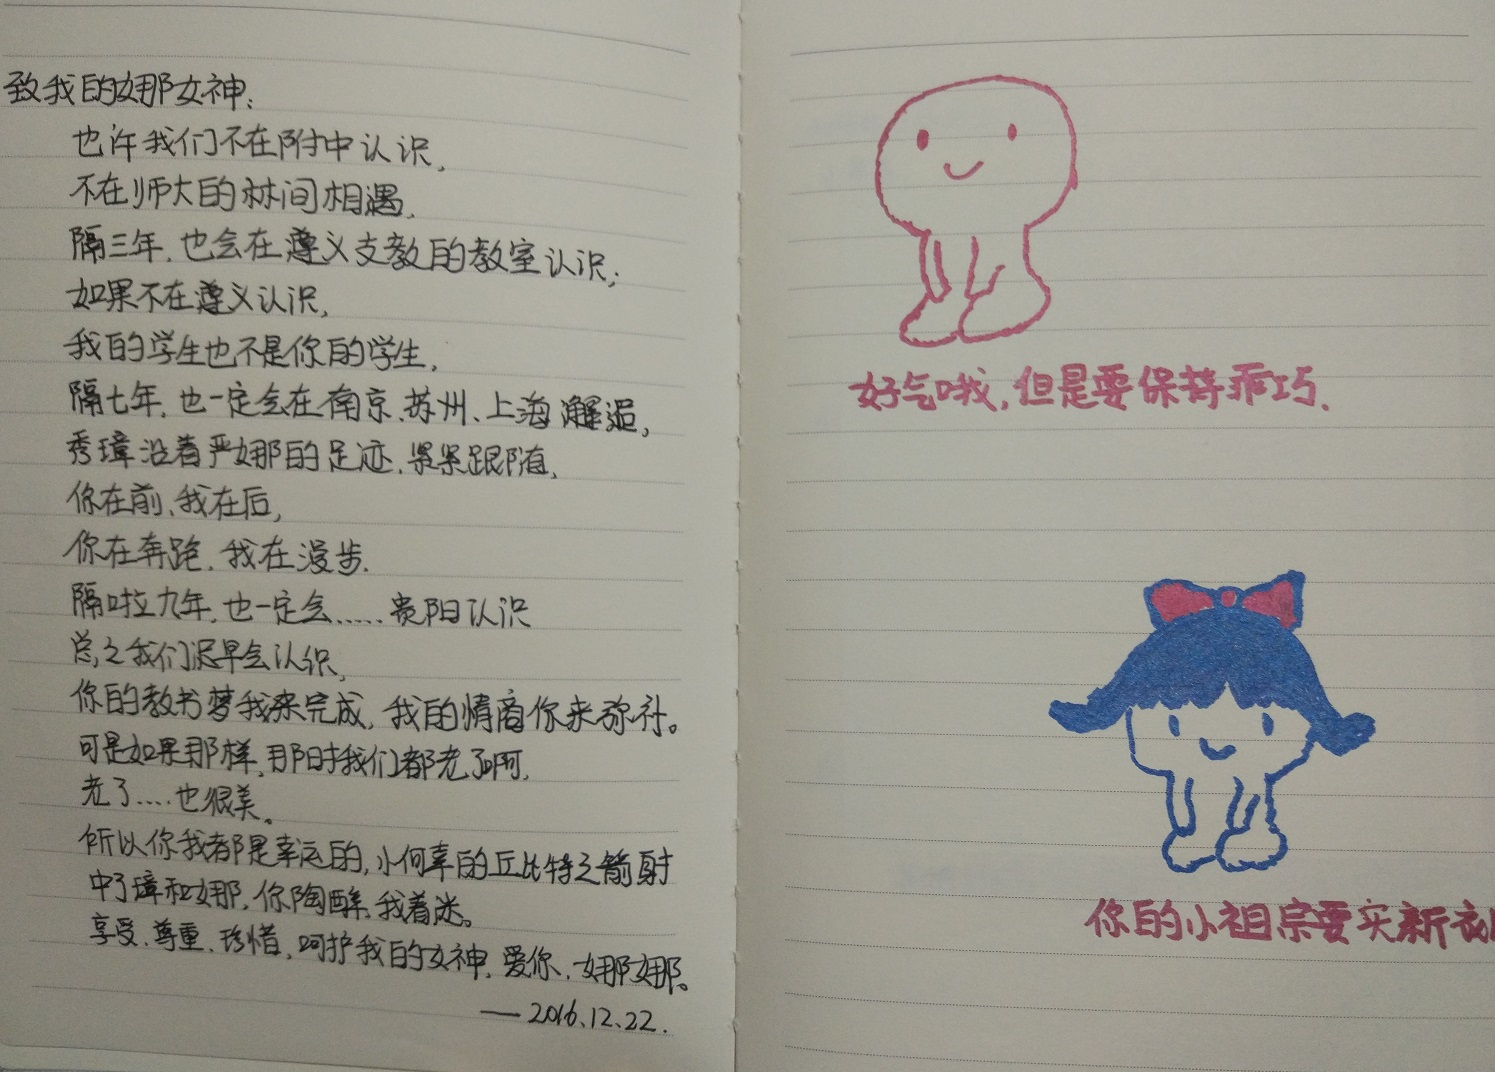 致我的娜女神:
也许我们不在附中认识,
不在师大的林间相遇,
隔三年,也会在遵义支教的教室认识;
如果不在遵义认识,
我的学生也不是你的学生,
隔七年,也一定会在南京、苏州、上海邂逅,
秀璋沿着严娜的足迹,紧紧跟随,
你在前,我在后,
你在奔跑,我在漫步.
隔啦九年,也一定会……贵阳认识
总之我们迟早会认识,
你的教书梦我来完成,我的情商你来弥补。
可是如果那样,那时我们都老了啊,
老了....也很美。
所以你我都是幸运的,小何幸的丘比特之箭射
中了璋和娜,你陶醉,我着迷。
享受、尊重、珍惜,呵护我的女神,爱你,娜娜。
——2016.12.22.
好气哦,但是要保持乖巧.
你的小祖宗要买新衣